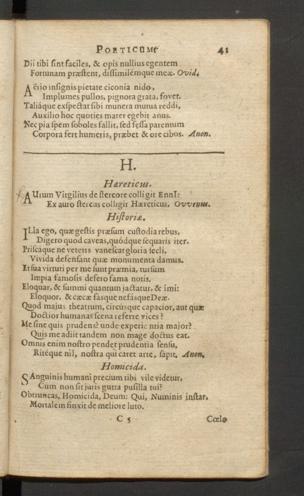 POETICUM 41
Dii tibi sint faciles, & opis nullius egentem
Fortunam præstent, dissimilémque meæ. Ovid.
Aërio insignis pietate ciconia nido,
Implumes pullos, pignora grata, fovet.
Taliáque exspectat sibi munera mutua reddi,
Auxilio hoc quoties mater egebit anus.
Nec pia spem soboles fallit, sed fessa parentum
Corpora fert humeris, præbet & ore cibos. Anon.
H.
Hæreticus.
AUrum Virgilius de stercore colligit Enni:
Ex auro stercus colligit Hæreticus. Ovvenus.
Historia.
ILla ego, quæ gestis præsum custodia rebus,
Digero quod caveas, quódque sequaris iter.
Priscaque ne veteris vanescat gloria secli,
Vivida defensant quæ monumenta damus.
Et sua virtuti per me sunt præmia, rursum
Impia famosis defero fama notis.
Eloquar, & summi quantum jactatur, & imi:
Eloquor, & cæcæ fasque nefásque Deæ.
Quod majus theatrum, circusque capacior, aut quæ
Doctior humanas scena referre vices?
Me sine quis prudens? unde experientia major?
Quis me adiit tandem non mage doctus eat.
Omnus enim nostro pendet prudentia sensu,
Ritéque nil, nostra qui caret arte, sapit. Anon.
Homicida.
SAnguinis humani precium tibi vile videtur,
Cum non sit juris gutta pusilla tui?
Obtruncas, Homicida, Deum: Qui, Numinis instar,
Mortalem finxit de meliore luto.
C 5 Cœlo